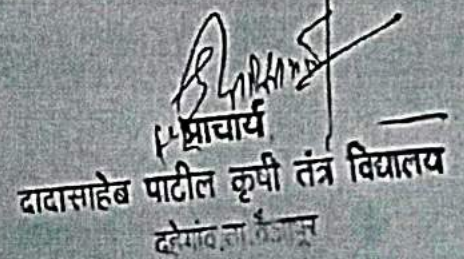 प्राचार्य
दादासाहेब पाटील कृषी तंत्र विद्यालय
दहेगांव, ता. वैजापूर